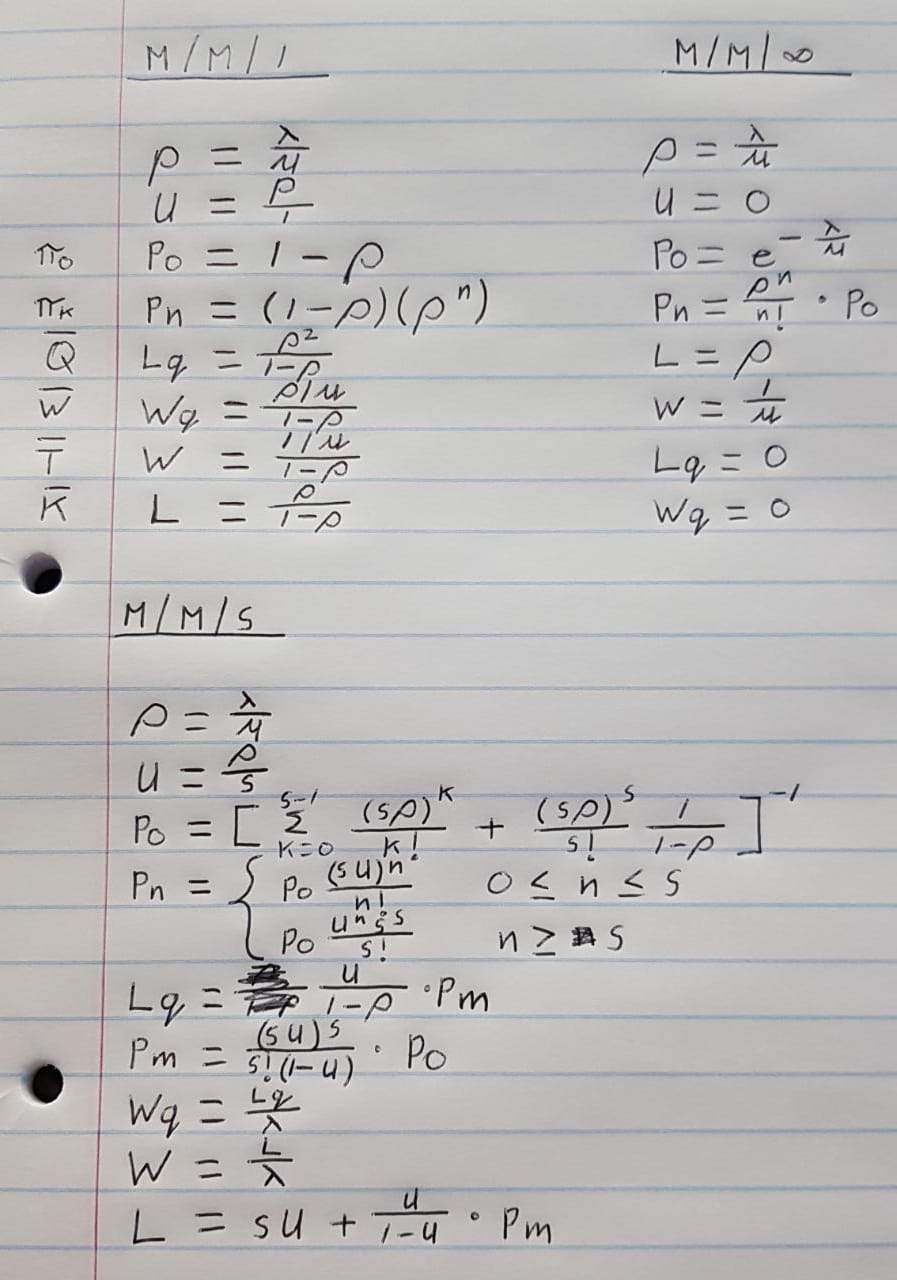 M/M/1
ρ = λ/μ
u = ρ/1
π₀ P₀ = 1 - ρ
πₖ Pn = (1-ρ)(ρⁿ)
Q̅ Lq = ρ²/1-ρ
W̅ Wq = ρ/μ/1-ρ
T̅ W = 1/μ/1-ρ
K̅ L = ρ/1-ρ
M/M/∞
ρ = λ/μ
u = 0
P₀ = e^-λ/μ
Pn = ρⁿ/n! · P₀
L = ρ
W = 1/μ
Lq = 0
Wq = 0
M/M/S
ρ = λ/μ
u = ρ/s
P₀ = [ s-1 Σ k=0 (sρ)^k/k! + (sρ)^s/s! 1/1-ρ ]^-1
Pn = { P₀ (su)ⁿ/n! 0 ≤ n ≤ s
P₀ uⁿsˢ/s! n ≥ s
Lq = u/1-ρ · Pm
Pm = (su)ˢ/s!(1-u) · P₀
Wq = Lq/λ
W = L/λ
L = su + u/1-u · Pm